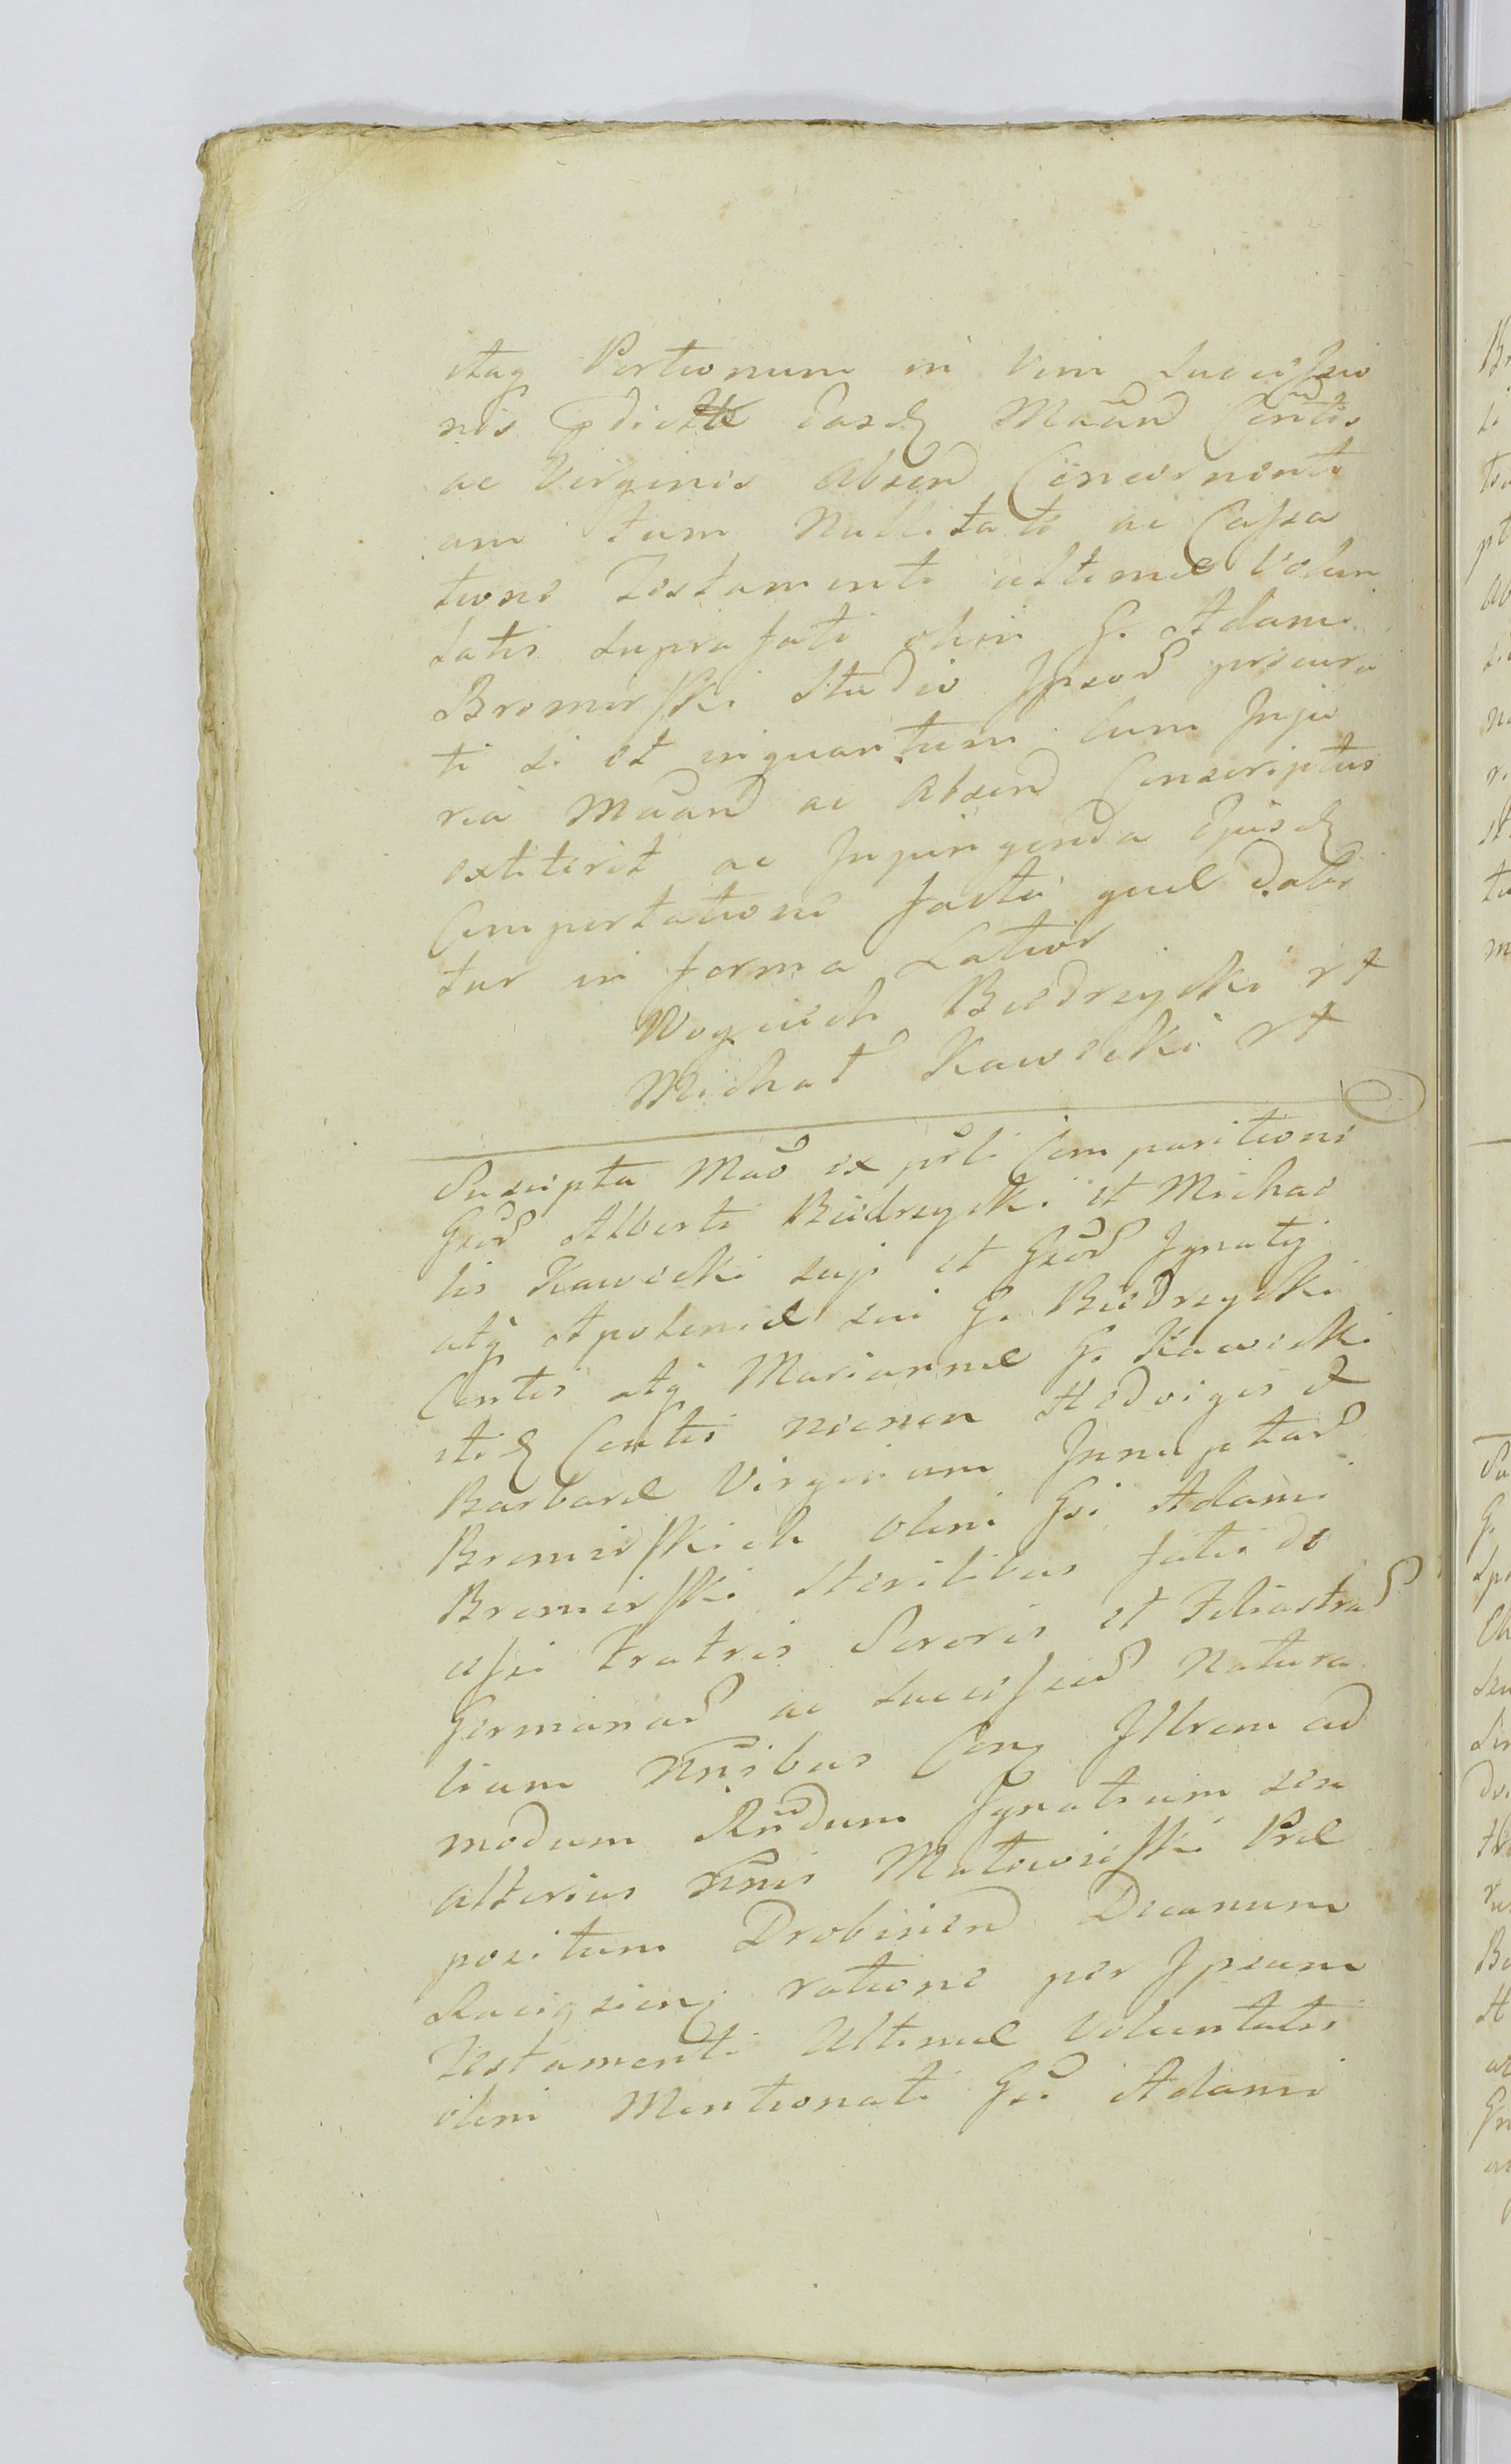 itaq Portionum in Vim Successio
nis pdictæ Easdq Maand Contis
ac Virginis Absend Concernenti
um tum Nullitate ac Cassa
tione Testamenti ultimæ Volun
tatis supra fati olim G. Adami
Bromirski Studio Ipsor procura
ti si et inquantum cum Inju
ria Maand ac Absend Conscriptus
extiterit ac Inpingenda Ejusdq
Comportatione facta quæ dabi
tur in forma Latior
Woyciech Biedrzycki rt
Michał Kawecki rt
Suscepta Mao ex psti Comparitione
Gsor Alberti Biedrzycki et Michae
lis Kawecki suji et Gsor Ignatij
atq Apoloniæ sui G. Biedrzycki
Contis atq Mariannæ G. Kawecki
itidq Contis necnon Hedvigis et
Barbaræ Virginum Innuptar
Bromirskich olim Gsi Adami
Bromirski Sterilibus fatis de
cessi Fratris Sororis et Filiastrar
Germanar ac Successor Natura
lium Nnibus Conq Illrem ad
modum Rndum Ignatium seu
alterius Nnis Malowieski Præ
positum Drobinend Decanum
Raciązienq ratione per Ipsum
Testamenti Ultimæ Voluntatis
olim Mentionati Gsi Adami